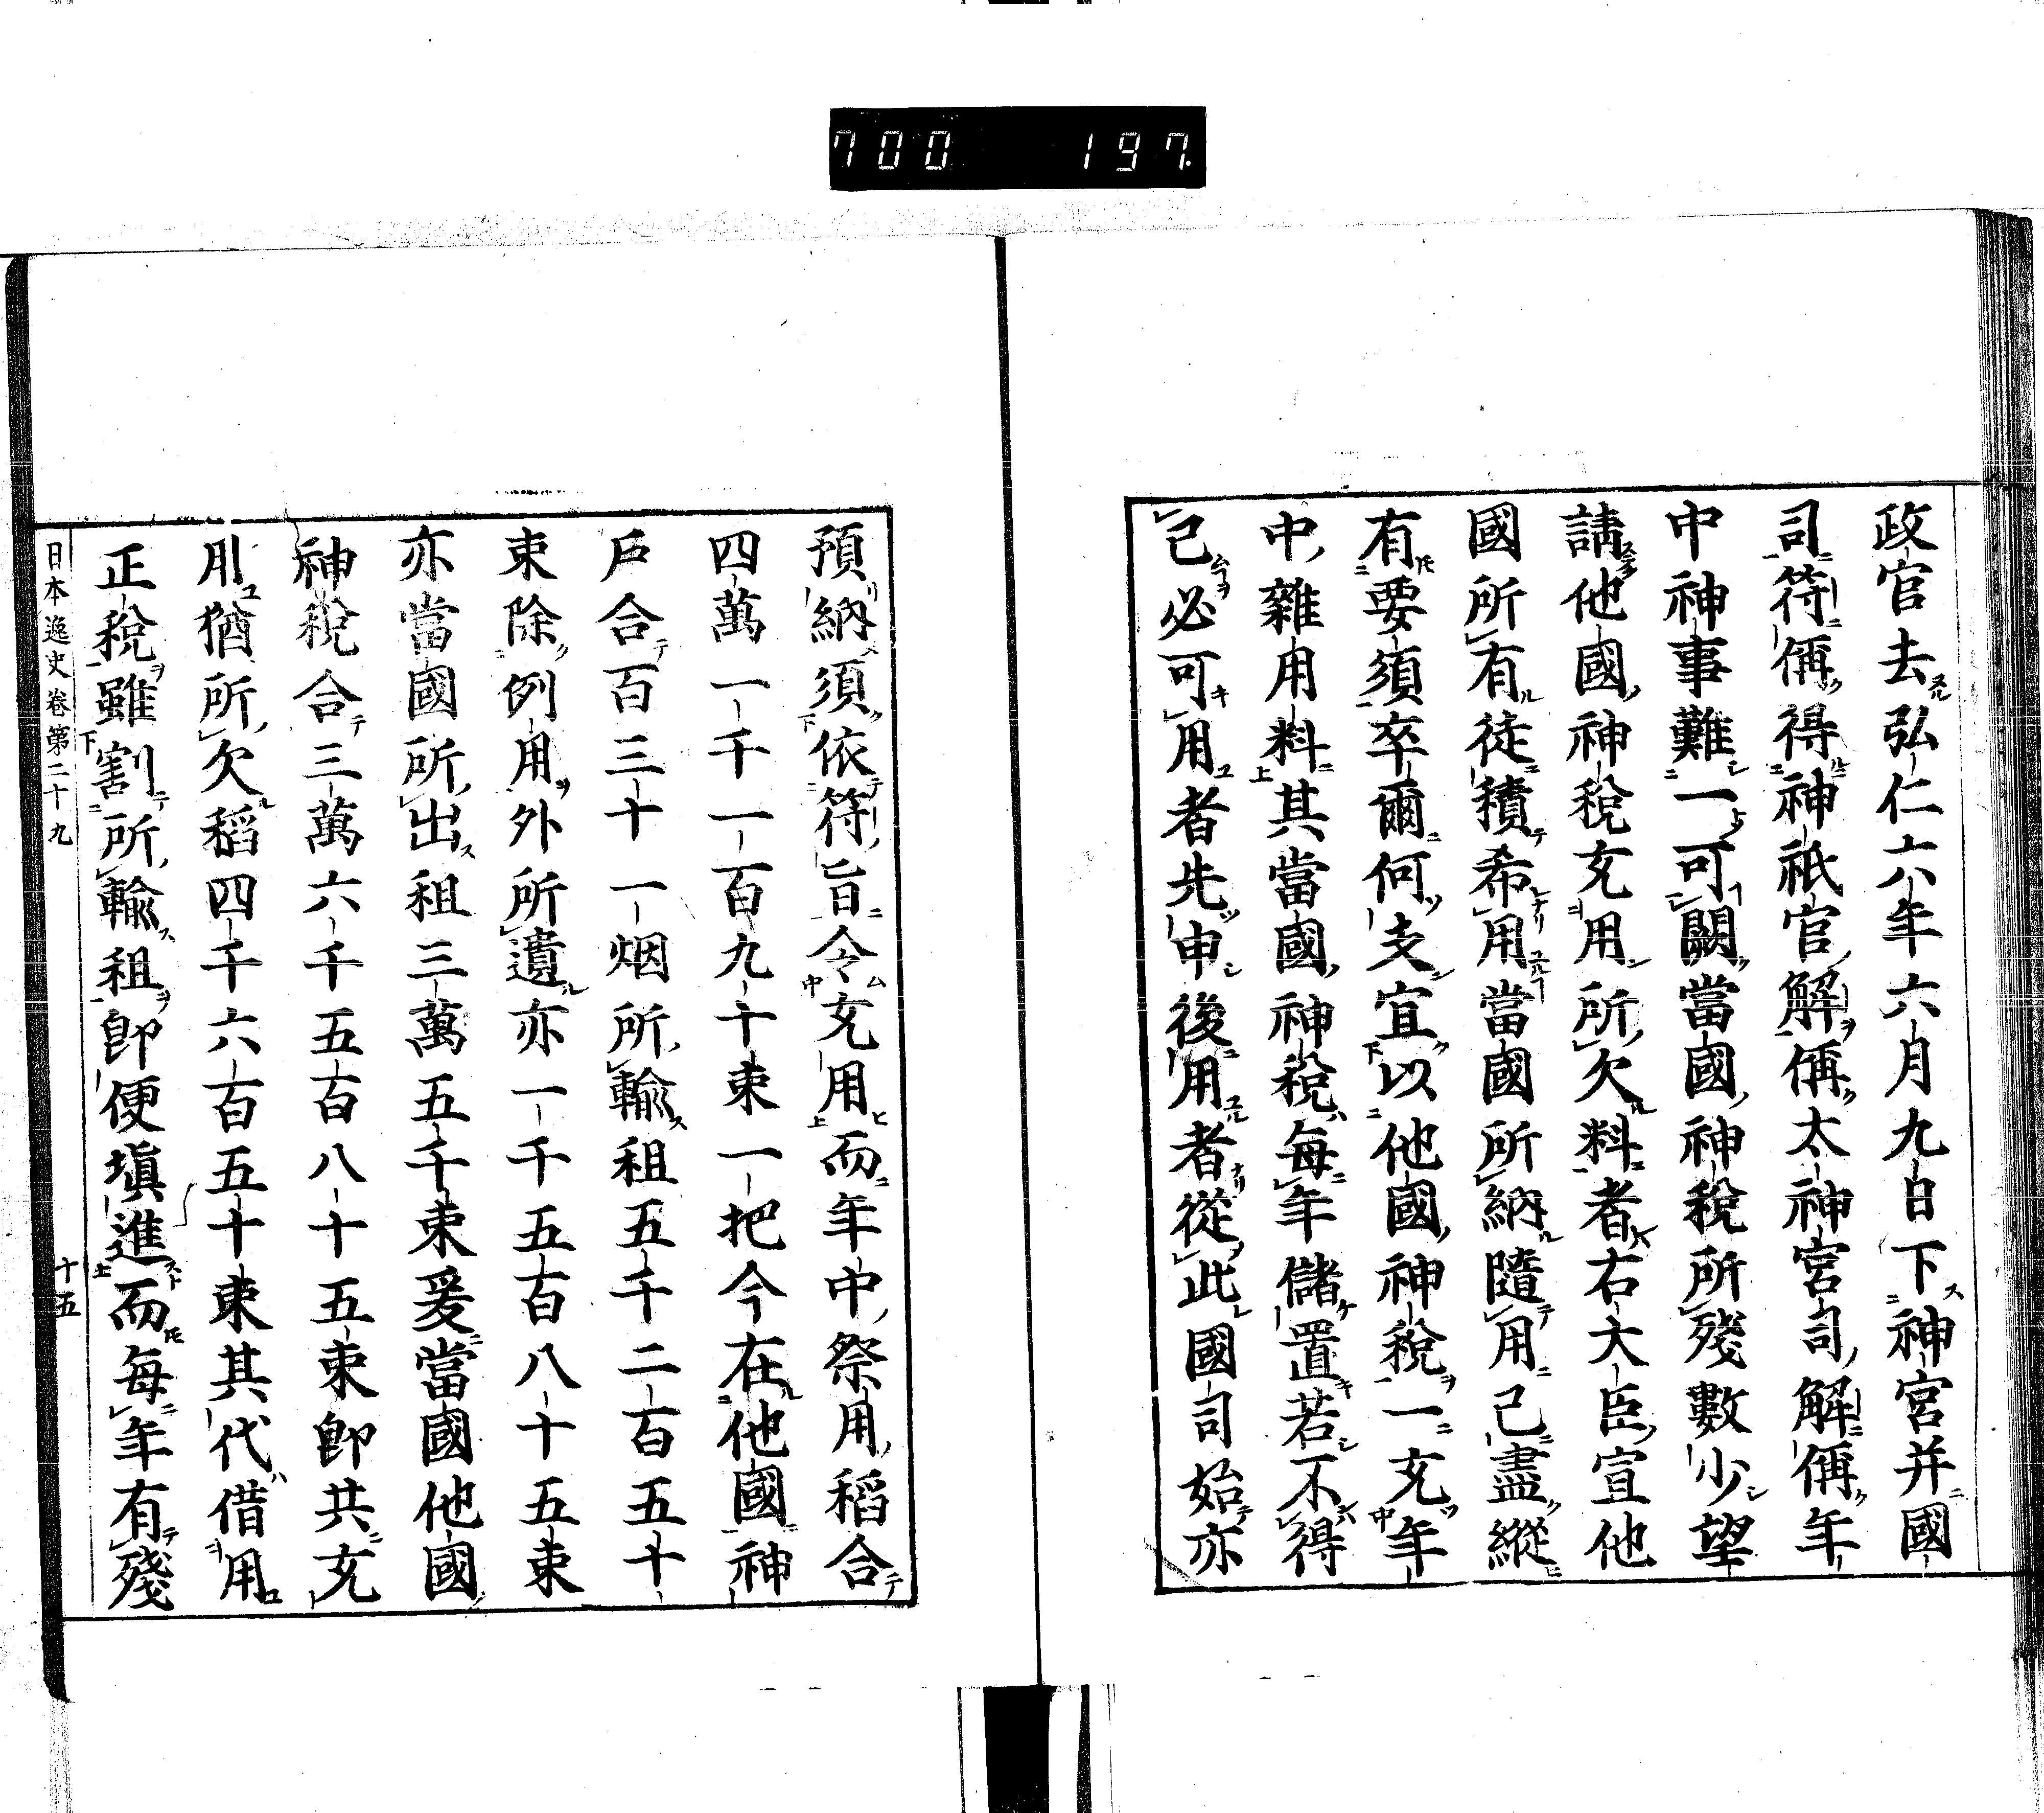 700 197
政官去弘仁六年六月九日下神宮并國
司符偁得神祇官解偁太神宮司解偁年
中神事難一可闕當國神税所殘數少望
請他國神税充用所欠料者右大臣宣他
國所有徒積希用當國所納隨用已盡縱
有要須卒爾何支宜以他國神税一充年
中雜用料其當國神税每年儲置若不得
已必可用者先申後用者從此國司始亦
預納須依符旨令充用而年中祭用稻合
四萬一千一百九十束一把今在他國神
戶合百三十一烟所輸租五千二百五十
束除例用外所遺亦一千五百八十五束
亦當國所出租三萬五千束爰當國他國
神税合三萬六千五百八十五束卽共充
用猶所欠稻四千六百五十束其代借用
正税雖割所輸租卽便塡進而每年有殘
日本逸史卷第二十九 十五